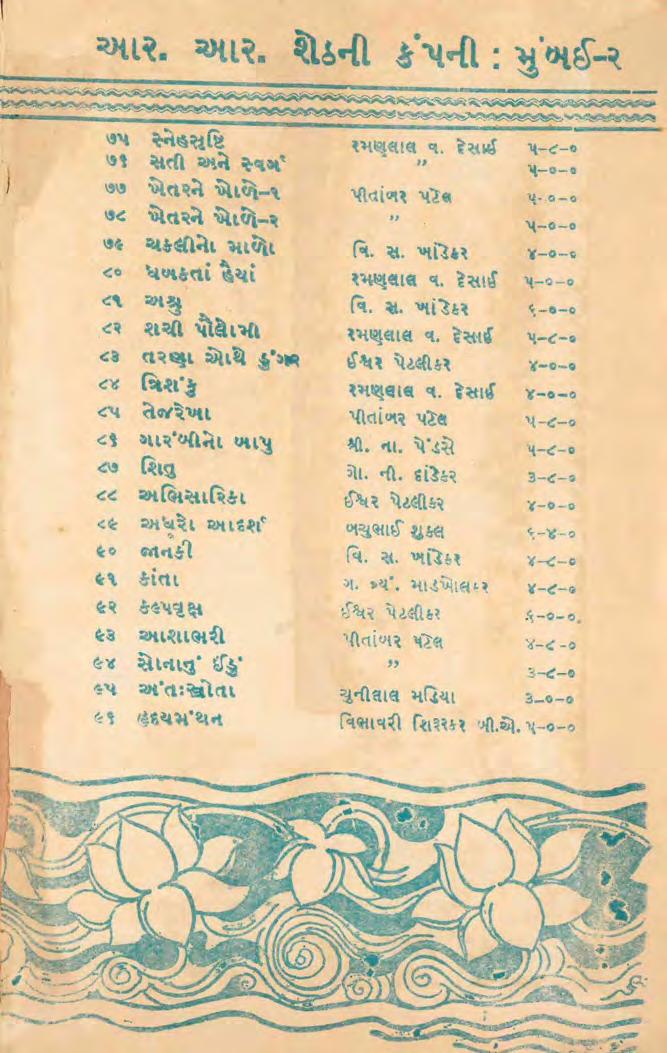 આર. આર. શેઠની કંપની : મુંબઈ-૨
૭૫ સ્નેહસૃષ્ટિ રમણલાલ વ. દેસાઈ ૫-૮-૦
૭૬ સતી અને સ્વર્ગ ,, ૫-૦-૦
૭૭ ખેતરને ખોળે-૧ પીતાંબર પટેલ ૫-૦-૦
૭૮ ખેતરને ખોળે-૨ ,, ૫-૦-૦
૭૯ ચકલીનો માળો વિ. સ. ખાંડેકર ૪-૦-૦
૮૦ ધબકતાં હૈયાં રમણલાલ વ. દેસાઈ ૫-૦-૦
૮૧ અશ્રુ વિ. સ. ખાંડેકર ૬-૦-૦
૮૨ શચી પૌલોમી રમણલાલ વ. દેસાઈ ૫-૮-૦
૮૩ તરણા ઓથે ડુંગર ઈશ્વર પેટલીકર ૪-૦-૦
૮૪ ત્રિશંકુ રમણલાલ વ. દેસાઈ ૪-૦-૦
૮૫ તેજરેખા પીતાંબર પટેલ ૫-૮-૦
૮૬ ગારંબીનો બાપુ શ્રી. ના. પેંડસે ૫-૮-૦
૮૭ શિતુ ગો. ની. દાંડેકર ૩-૮-૦
૮૮ અભિસારિકા ઈશ્વર પેટલીકર ૪-૦-૦
૮૯ અધૂરો આદર્શ બચુભાઈ શુક્લ ૬-૪-૦
૯૦ જાનકી વિ. સ. ખાંડેકર ૪-૮-૦
૯૧ કાંતા ગ. ત્ર્યં. માડખોલકર ૪-૮-૦
૯૨ કલ્પવૃક્ષ ઈશ્વર પેટલીકર ૬-૦-૦
૯૩ આશાભરી પીતાંબર પટેલ ૪-૮-૦
૯૪ સોનાનું ઈંડું ,, ૩-૮-૦
૯૫ અંતઃસ્રોતા ચુનીલાલ મડિયા ૩-૦-૦
૯૬ હૃદયમંથન વિભાવરી શિરૂરકર બી.એ. ૫-૦-૦